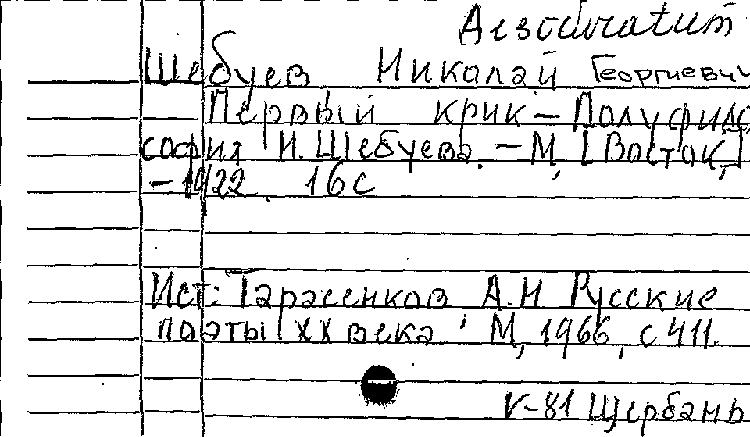 Desideratum
Шебуев Николай Георгиевич
Первый крик — Полуфило
софия Н. Шебуева. — М, [Восток,]
— 1922. 16 с
Ист: Тарасенков А.Н Русские
поэты XX века. М, 1966, с 411.
V-81 Щербань